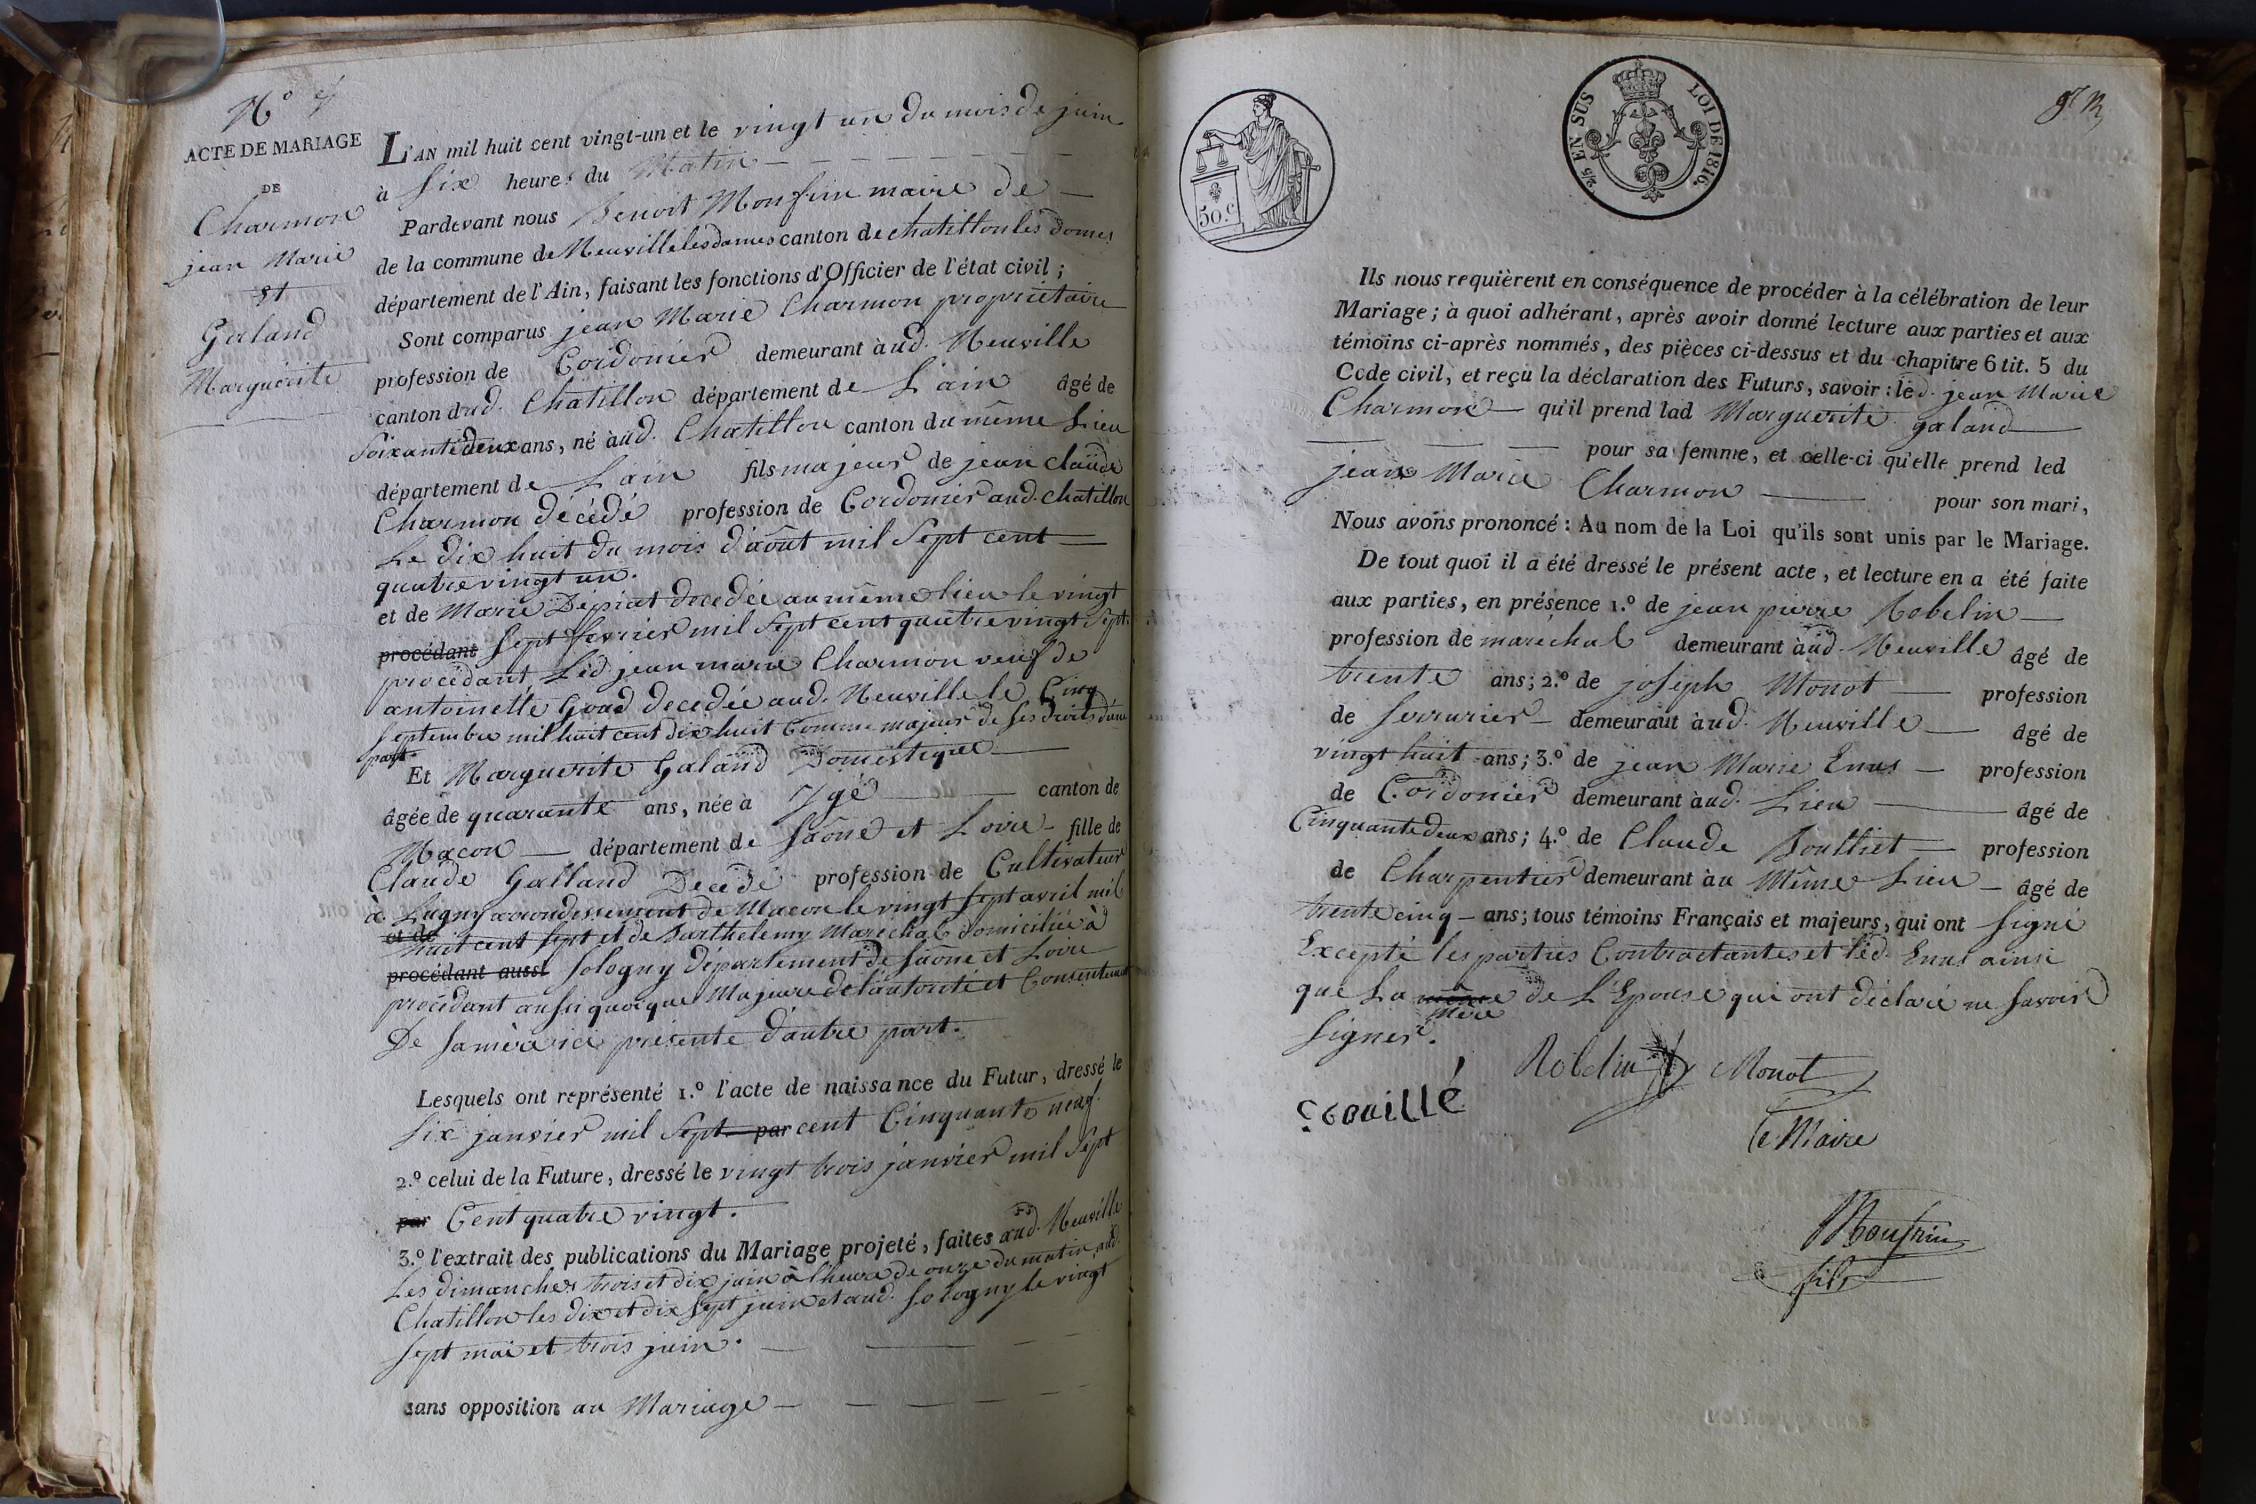 N.o 7
ACTE DE MARIAGE
DE
Charmon
jean Marie
et
Galand
Marguerite
L'AN mil huit cent vingt-un et le vingt un du mois de juin
à Six heures du Matin
Pardevant nous Benoit Monfrin maire de
de la commune de Neuville les dames canton de chatillon les Domes
département de l'Ain, faisant les fonctions d'Officier de l'état civil ;
Sont comparus jean Marie Charmon propriétaire
profession de Cordonier demeurant à ud. Neuville
canton dud. Chatillon département de L'ain âgé de
Soixante deux ans, né à ud. Chatillon canton du même Lieu
département de L'ain fils majeur de jean claude
Charmon décédé profession de Cordonier aud. chatillon
Le dix huit du mois d'août mil Sept cent
quatre vingt un.
et de Marie Dépirat decedée au même lieu le vingt
procédant Sept fevrier mil Sept cent quatre vingt Sept.
procédant Led jean marie Charmon veuf de
antoinette Goad decedée aud. Neuville le Cinq
Septembre mil huit cent dix huit comme majeur de ses droits d'une
part.
Et Marguerite Galand Domestique
âgée de quarante ans, née à Igé canton de
Macon département de Saône et Loire fille de
Claude Galland Decedé profession de Cultivateur
à Lugny arrondissement de Macon le vingt Sept avril mil
et de huit cent Sept et de Barthelemy Marechal domiciliée à
procédant aussi Sologny département de Saône et Loire
procédant aussi quoique Majeure de l'autorité et Consentement
De Sa mère ici présente d'autre part.
Lesquels ont représenté 1.º l'acte de naissance du Futur, dressé le
Six janvier mil Sept par cent Cinquante neuf.
2.º celui de la Future, dressé le vingt trois janvier mil Sept
par Cent quatre vingt.
3.º l'extrait des publications du Mariage projeté, faites aud. Neuville
Les dimanches trois et dix juin à l'heure de onze du matin, aud.
Chatillon les dix et dix Sept juin et aud. Sologny le vingt
Sept mai et trois juin.
sans opposition au Mariage
50.c
2/5 EN SUS LOI DE 1816.
Ils nous requièrent en conséquence de procéder à la célébration de leur
Mariage ; à quoi adhérant, après avoir donné lecture aux parties et aux
témoins ci-après nommés, des pièces ci-dessus et du chapitre 6 tit. 5 du
Code civil, et reçu la déclaration des Futurs, savoir : led. jean Marie
Charmon qu'il prend lad Marguerite galand
pour sa femme, et celle-ci qu'elle prend led
jean Marie Charmon pour son mari,
Nous avons prononcé : Au nom de la Loi qu'ils sont unis par le Mariage.
De tout quoi il a été dressé le présent acte, et lecture en a été faite
aux parties, en présence 1.º de jean pierre Robelin
profession de maréchal demeurant à ud. Neuville âgé de
trente ans ; 2.º de joseph Monot profession
de Serrurier demeurant à ud. Neuville âgé de
vingt huit ans ; 3.º de jean Marie Enus profession
de Cordonier demeurant à ud. Lieu âgé de
Cinquante deux ans ; 4.º de Claude Bouthiet profession
de Charpentier demeurant à u Même Lieu âgé de
trente cinq ans ; tous témoins Français et majeurs, qui ont Signé
Excepté les parties Contractantes et led. Enus ainsi
que La même de L'Epouse qui ont déclaré ne Savoir
mère
Signer.
Robelin Monot
Le Maire
Monfrin
fils